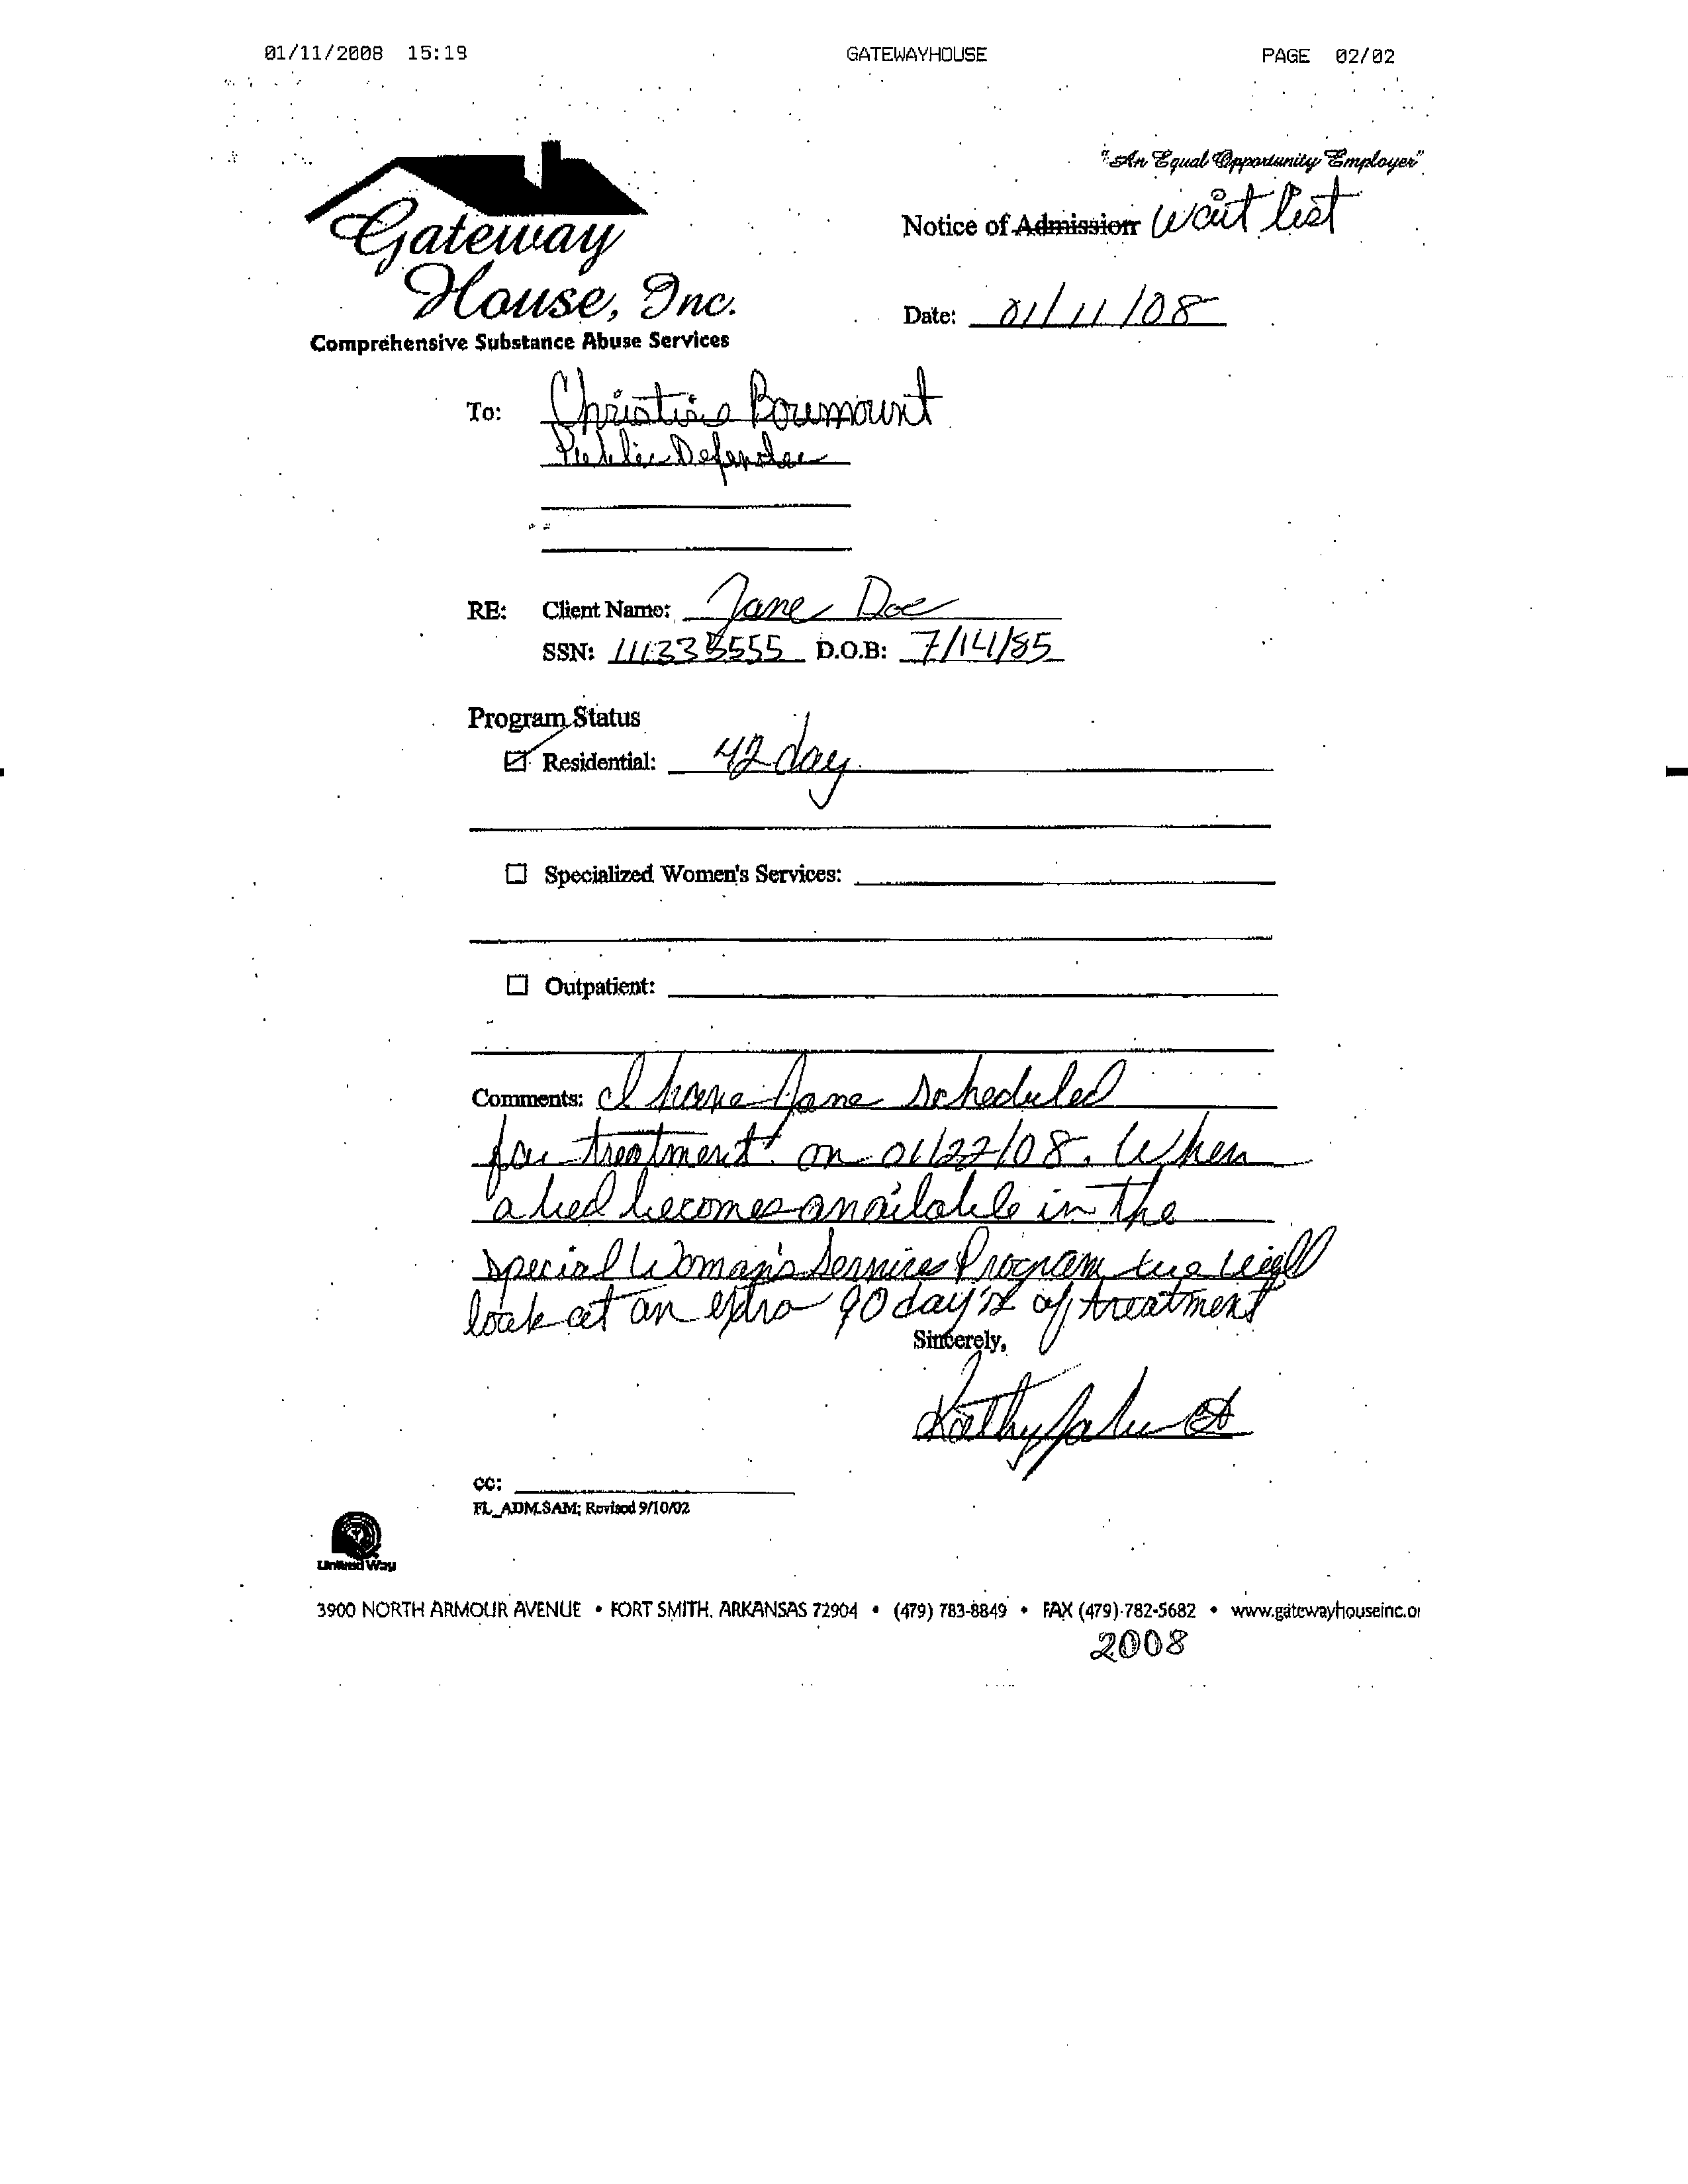 01/11/2008 15:19 GATEWAYHOUSE PAGE 02/02
"An Equal Opportunity Employer"
Gateway
House, Inc.
Comprehensive Substance Abuse Services
Notice of Admission Wait list
Date: 01/11/08
To: Christine Boumount
Public Defender
RE: Client Name: Jane Doe
SSN: 111335555 D.O.B: 7/14/85
Program Status
☑ Residential: 42 day
☐ Specialized Women's Services:
☐ Outpatient:
Comments: I have Jane scheduled
for treatment on 01/22/08. When
a bed becomes available in the
Special Woman's Services Program we will
look at an extra 90 day's of treatment
Sincerely,
Kathy
cc:
FL_ADM.SAM; Revised 9/10/02
United Way
3900 NORTH ARMOUR AVENUE • FORT SMITH, ARKANSAS 72904 • (479) 783-8849 • FAX (479)-782-5682 • www.gatewayhouseinc.or
2008